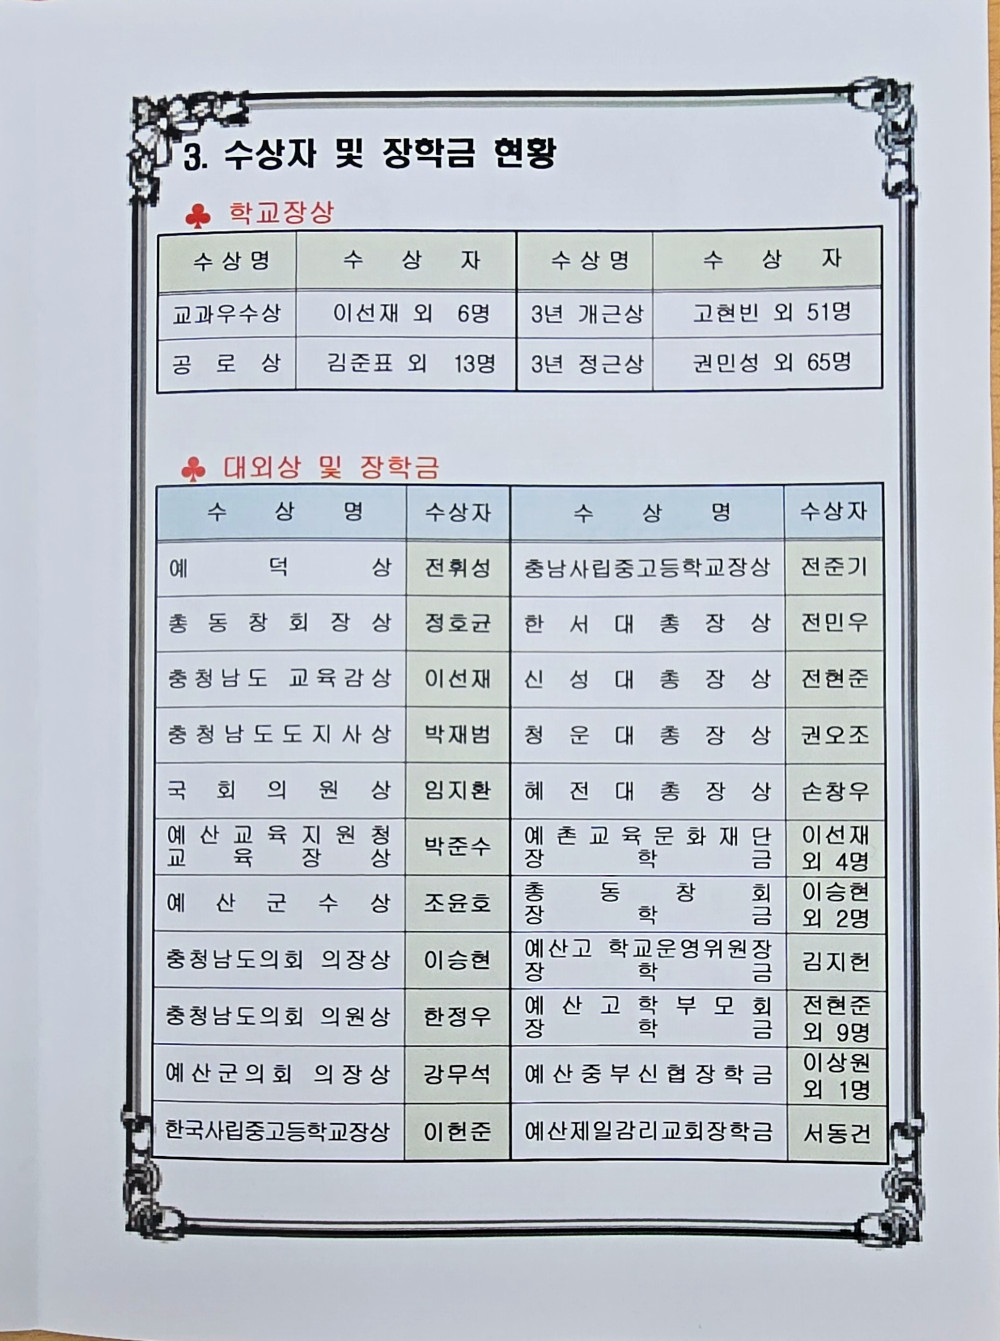 3. 수상자 및 장학금 현황
♣ 학교장상
수상명 수 상 자 수상명 수 상 자
교과우수상 이선재 외 6명 3년 개근상 고현빈 외 51명
공 로 상 김준표 외 13명 3년 정근상 권민성 외 65명
♣ 대외상 및 장학금
수 상 명 수상자 수 상 명 수상자
예 덕 상 전휘성 충남사립중고등학교장상 전준기
총 동 창 회 장 상 정호균 한 서 대 총 장 상 전민우
충청남도 교육감상 이선재 신 성 대 총 장 상 전현준
충청남도도지사상 박재범 청 운 대 총 장 상 권오조
국 회 의 원 상 임지환 혜 전 대 총 장 상 손창우
예 산 교 육 지 원 청 예 촌 교 육 문 화 재 단 이선재
교 육 장 상 박준수 장 학 금 외 4명
예 산 군 수 상 조윤호 총 동 창 회 이승현
장 학 금 외 2명
충청남도의회 의장상 이승현 예산고 학교운영위원장 김지헌
장 학 금
충청남도의회 의원상 한정우 예 산 고 학 부 모 회 전현준
장 학 금 외 9명
예산군의회 의장상 강무석 예산중부신협장학금 이상원
외 1명
한국사립중고등학교장상 이헌준 예산제일감리교회장학금 서동건